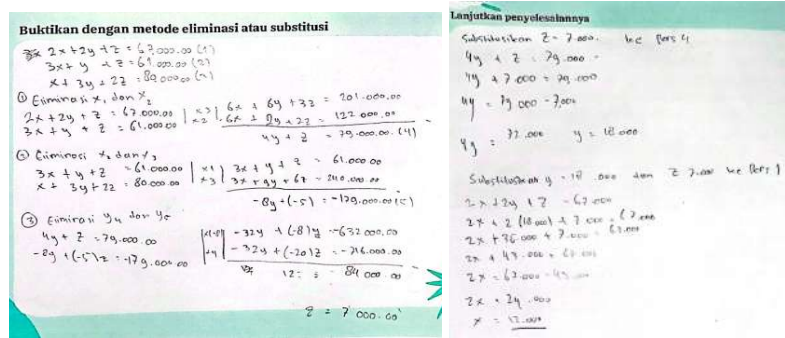 Buktikan dengan metode eliminasi atau substitusi
2x + 2y + z = 67.000.00 (1)
3x + y + z = 61.000.00 (2)
x + 3y + 2z = 80.000.00
① Eliminasi x, dan x2
2x + 2y + z = 67.000.00 | x3 | 6x + 6y + 3z = 201.000.00
3x + y + z = 61.000.00 | x2 | 6x + 2y + 2z = 122.000.00
4y + z = 79.000.00 (4)
Eiminasi x2 dan
3x + y + z = 61.000.00 | x1 | 3x + y + z = 61.000.00
x + 3y + 2z = 80.000.00 | x3 | 3x + 9y + 6z = 240.000.00
-8y + (-5) = -179.000.00 (5)
③ Eiminasi y4 dan y5
4y + z = 79.000.00 -32y + (-8)y = -632.000.00
-8y + (-5)z = -179.000.00 | x4 | -32y + (-20)z = -716.000.00
12z = 84.000.00
z = 7.000.00
Lanjutkan penyelesaiannya
Substitusikan z = 7.000. ke Pers 4
4y + z = 79.000
4y + 7.000 = 79.000
4y = 79.000 - 7.000
4y = 72.000 y = 18.000
Substitusikan y = 18.000 dan z 7.000 ke Pers 1
2x + 2y + z = 67.000
2x + 2 (18.000) + 7.000 = 67.000
2x + 36.000 + 7.000 = 67.000
2x + 43.000 = 67.000
2x = 67.000 - 43.000
2x = 24.000
x = 12.000